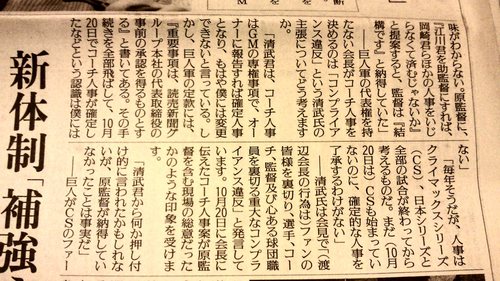 味がわからない。原監督に、
『江川君を助監督にすれば、
岡崎君らほかの人事をいじ
らなくて済むじゃないか』
と提案すると、監督は『結
構です』と納得していた」
――巨人軍の代表権を持
たない会長がコーチ人事を
決めるのは「コンプライア
ンス違反」という清武氏の
主張についてどう考えます
か。
「清武君は、コーチ人事
はGMの専権事項で、オー
ナーに報告すれば確定人事
となり、もはや僕には変更
できないと言っている。し
かし、巨人軍の定款には、
『重要事項は、読売新聞グ
ループ本社の代表取締役の
事前の承認を得るものとす
る』と書いてある。その手
続きを全部飛ばして、10月
20日でコーチ人事が確定し
たなどという認識は僕には
ない」
「毎年そうだが、人事は
クライマックスシリーズ
(CS)、日本シリーズと
全部の試合が終わってから
考えるものだ。まだ(10月
20日は)CSも始まってい
ないのに、確定的な人事を
了承するわけがない」
――清武氏は会見で「(渡
辺会長の行為は)ファンの
皆様を裏切り、選手、コー
チ、監督及び心ある球団職
員を裏切る重大なコンプラ
イアンス違反」と発言して
います。10月20日に会長に
伝えたコーチ人事案が原監
督を含む現場の総意だった
かのような印象を受けま
す。
「清武君から何か押し付
け的に言われたかもしれな
いが、原監督が納得してい
なかったことは事実だ」
――巨人がCSのファー
新体制「補強